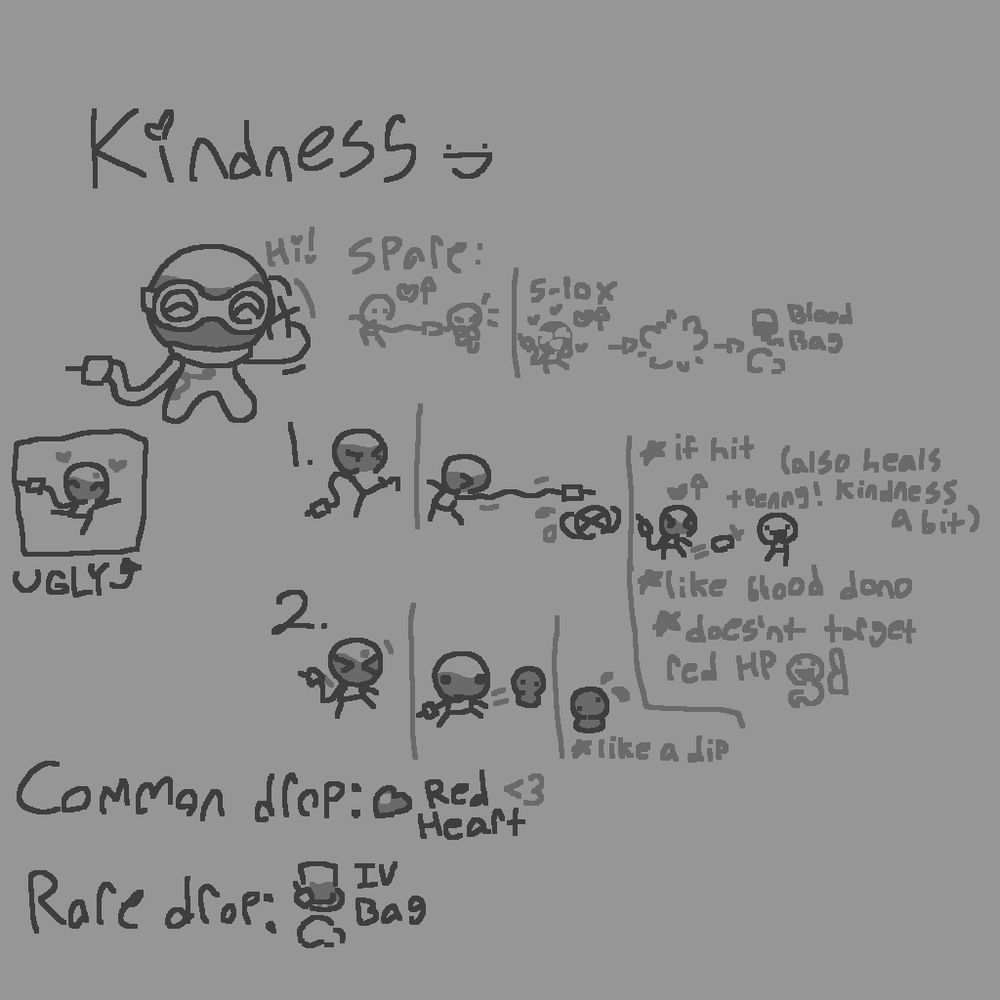 Kindness :D
Hi!
Spare:
5-10x
Blood
Bag
1.
* if hit
(also heals
Kindness
a bit)
+Penny!
*like blood dono
*does'nt target
red HP
UGLY
2.
*like a dip
Common drop: Red <3
Heart
Rare drop: IV
Bag